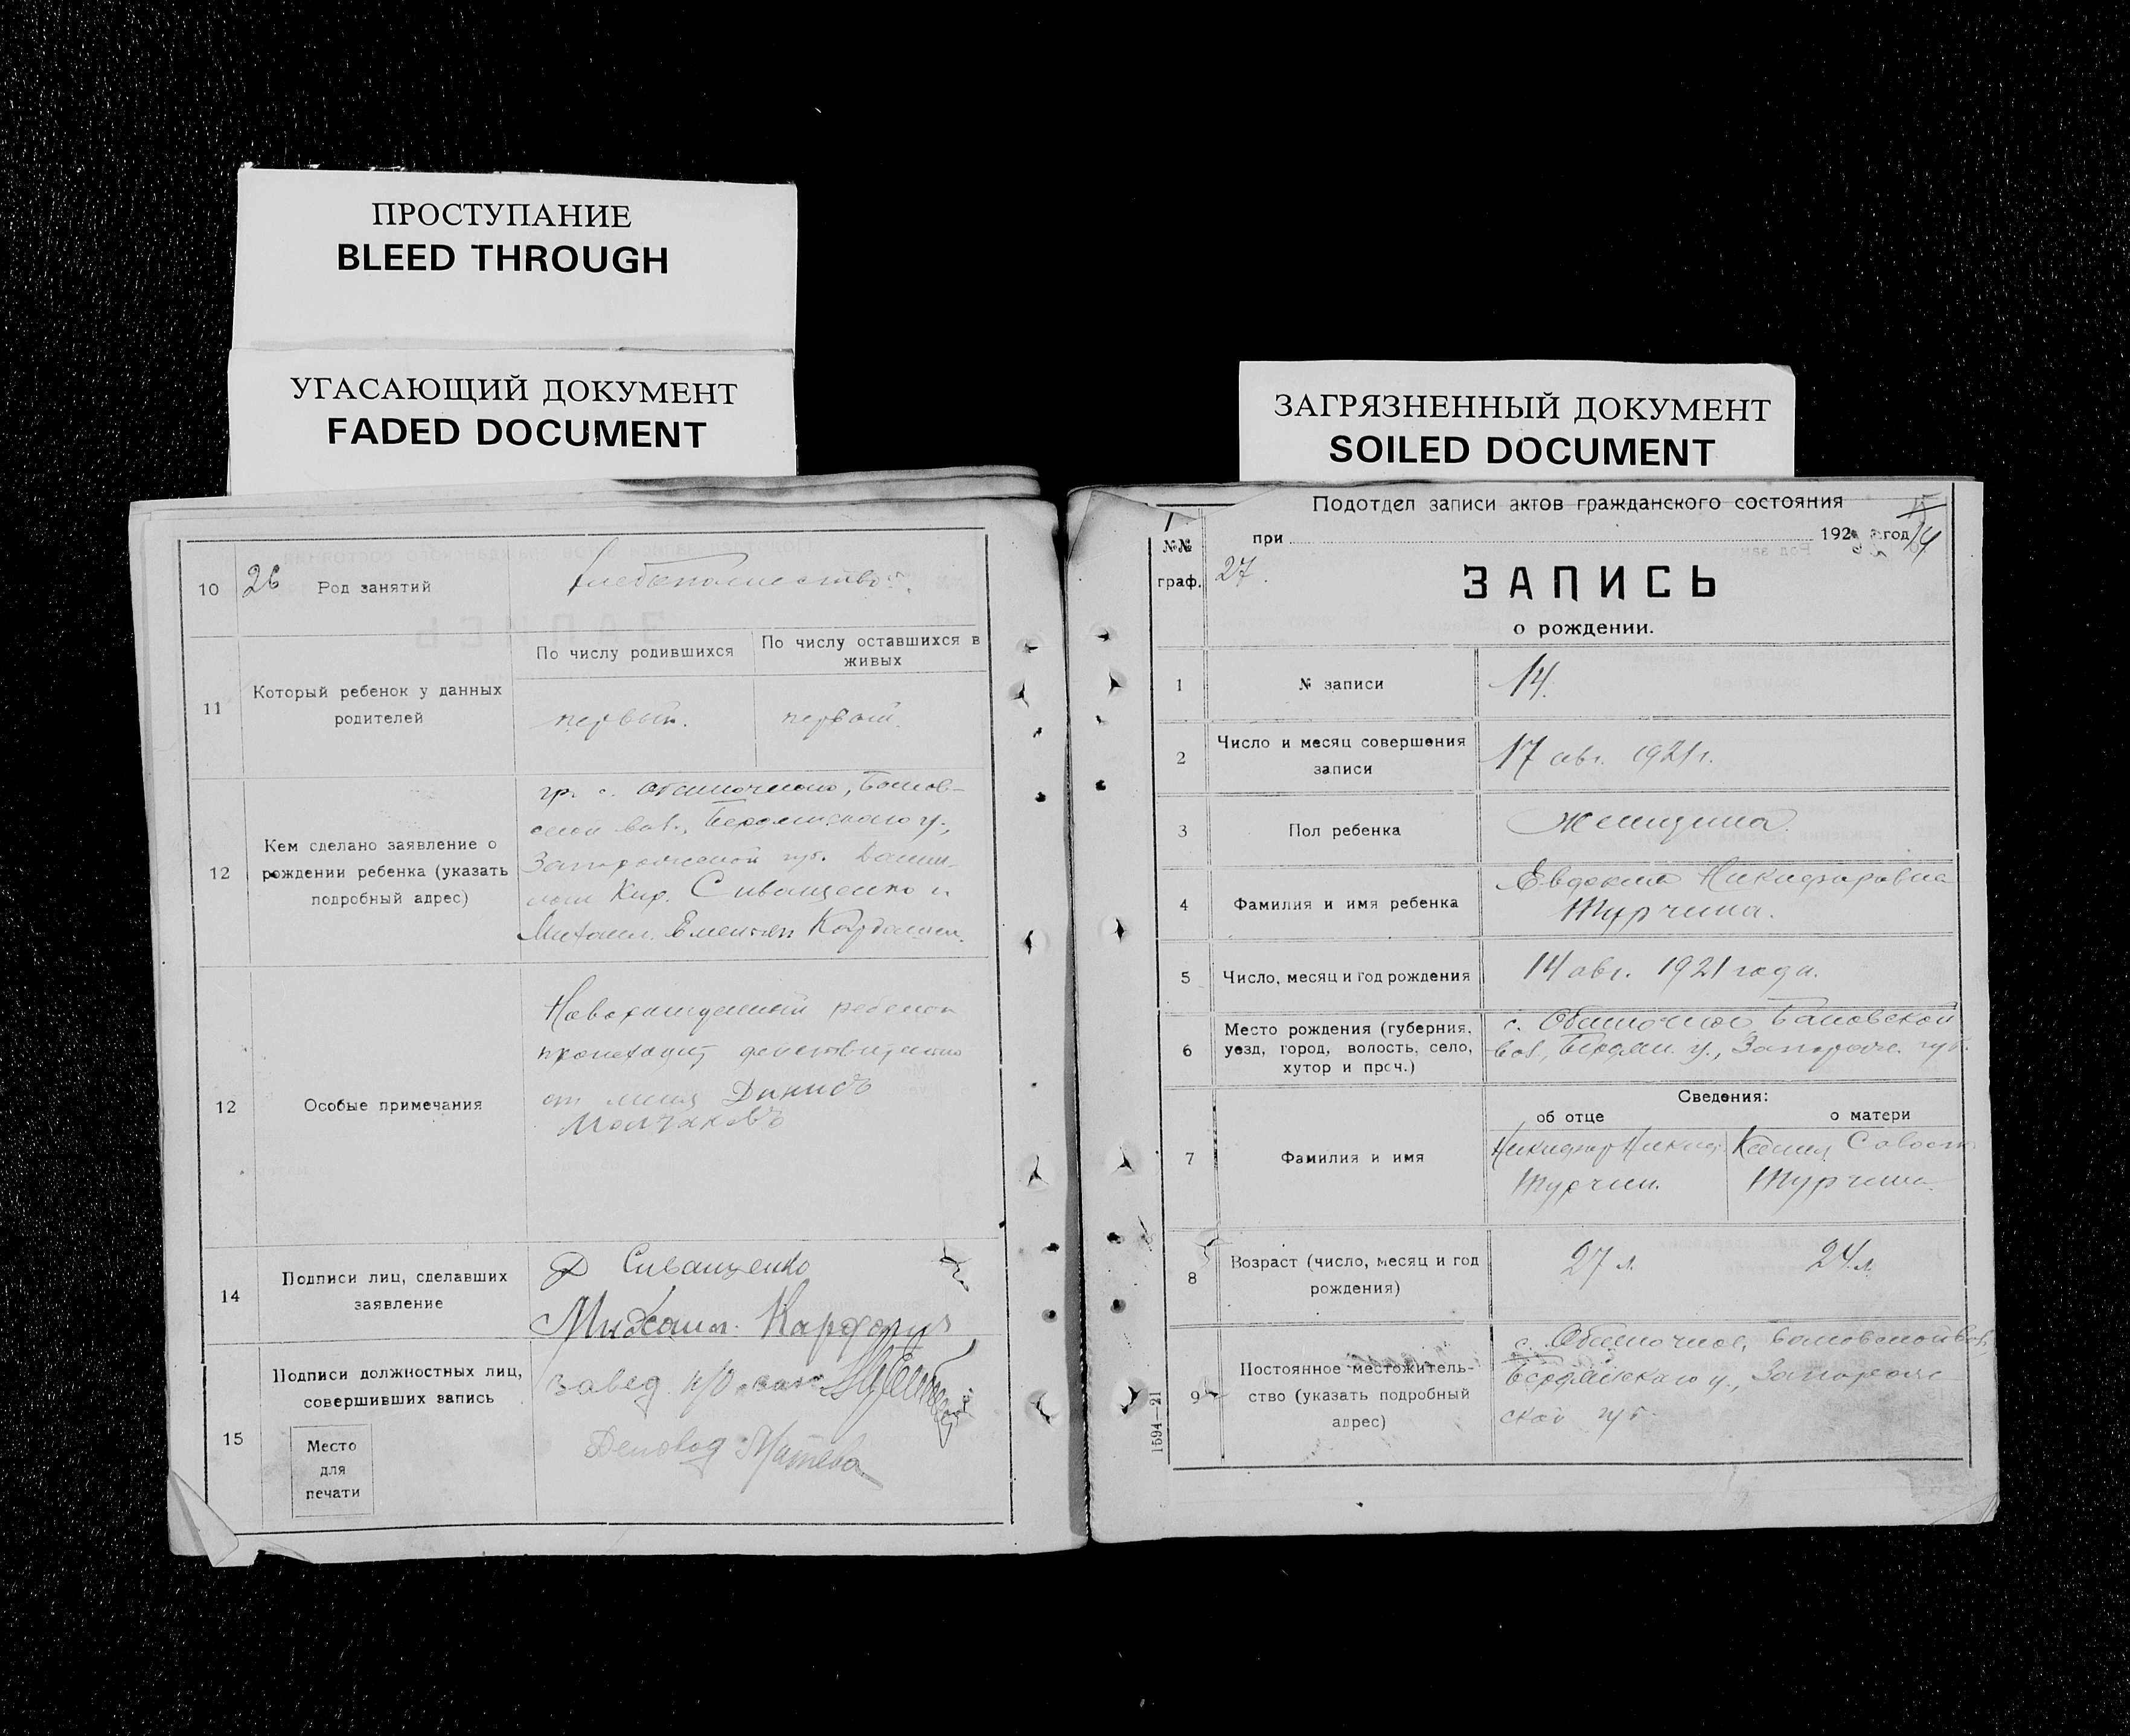 ПРОСТУПАНИЕ
BLEED THROUGH
УГАСАЮЩИЙ ДОКУМЕНТ
FADED DOCUMENT
ЗАГРЯЗНЕННЫЙ ДОКУМЕНТ
SOILED DOCUMENT
10
26
Род занятий
11
Который ребенок у данных
родителей
По числу родившихся
первый.
По числу оставшихся в
живых
первый.
12
Кем сделано заявление о
рождении ребенка (указать
подробный адрес)
гр. с. Обиточного, Банов-
ской вол., Бердянского у.,
Запорожской губ.
Кир. Сиващенко и
Михаил. Емельян.
12
Особые примечания
Новорожденный ребенок
происходит действительно
от меня Динидъ
Молчановъ
14
Подписи лиц, сделавших
заявление
Д Сиващенко
Михаил.
15
Подписи должностных лиц,
совершивших запись
Место
для
печати
завед. п/о
Деловод
Подотдел записи актов гражданского состояния
№№
граф.
27.
при 192 год
15
14
ЗАПИСЬ
о рождении.
1
№ записи
14.
2
Число и месяц совершения
записи
17 авг. 1921 г.
3
Пол ребенка
женщина.
4
Фамилия и имя ребенка
Евдокия Никифоровна
Турчина.
5
Число, месяц и год рождения
14 авг. 1921 года.
6
Место рождения (губерния,
уезд, город, волость, село,
хутор и проч.)
с. Обиточное Бановской
вол., Бердян. у., Запорож. губ.
7
Фамилия и имя
Сведения:
об отце
Никифор Никиф.
Турчин.
о матери
Ксения Савост.
Турчина.
8
Возраст (число, месяц и год
рождения)
27 л.
24 л.
9
Постоянное местожитель-
ство (указать подробный
адрес)
с. Обиточное, Бановской вол.,
Бердянского у., Запорож-
ской губ.
1594—21